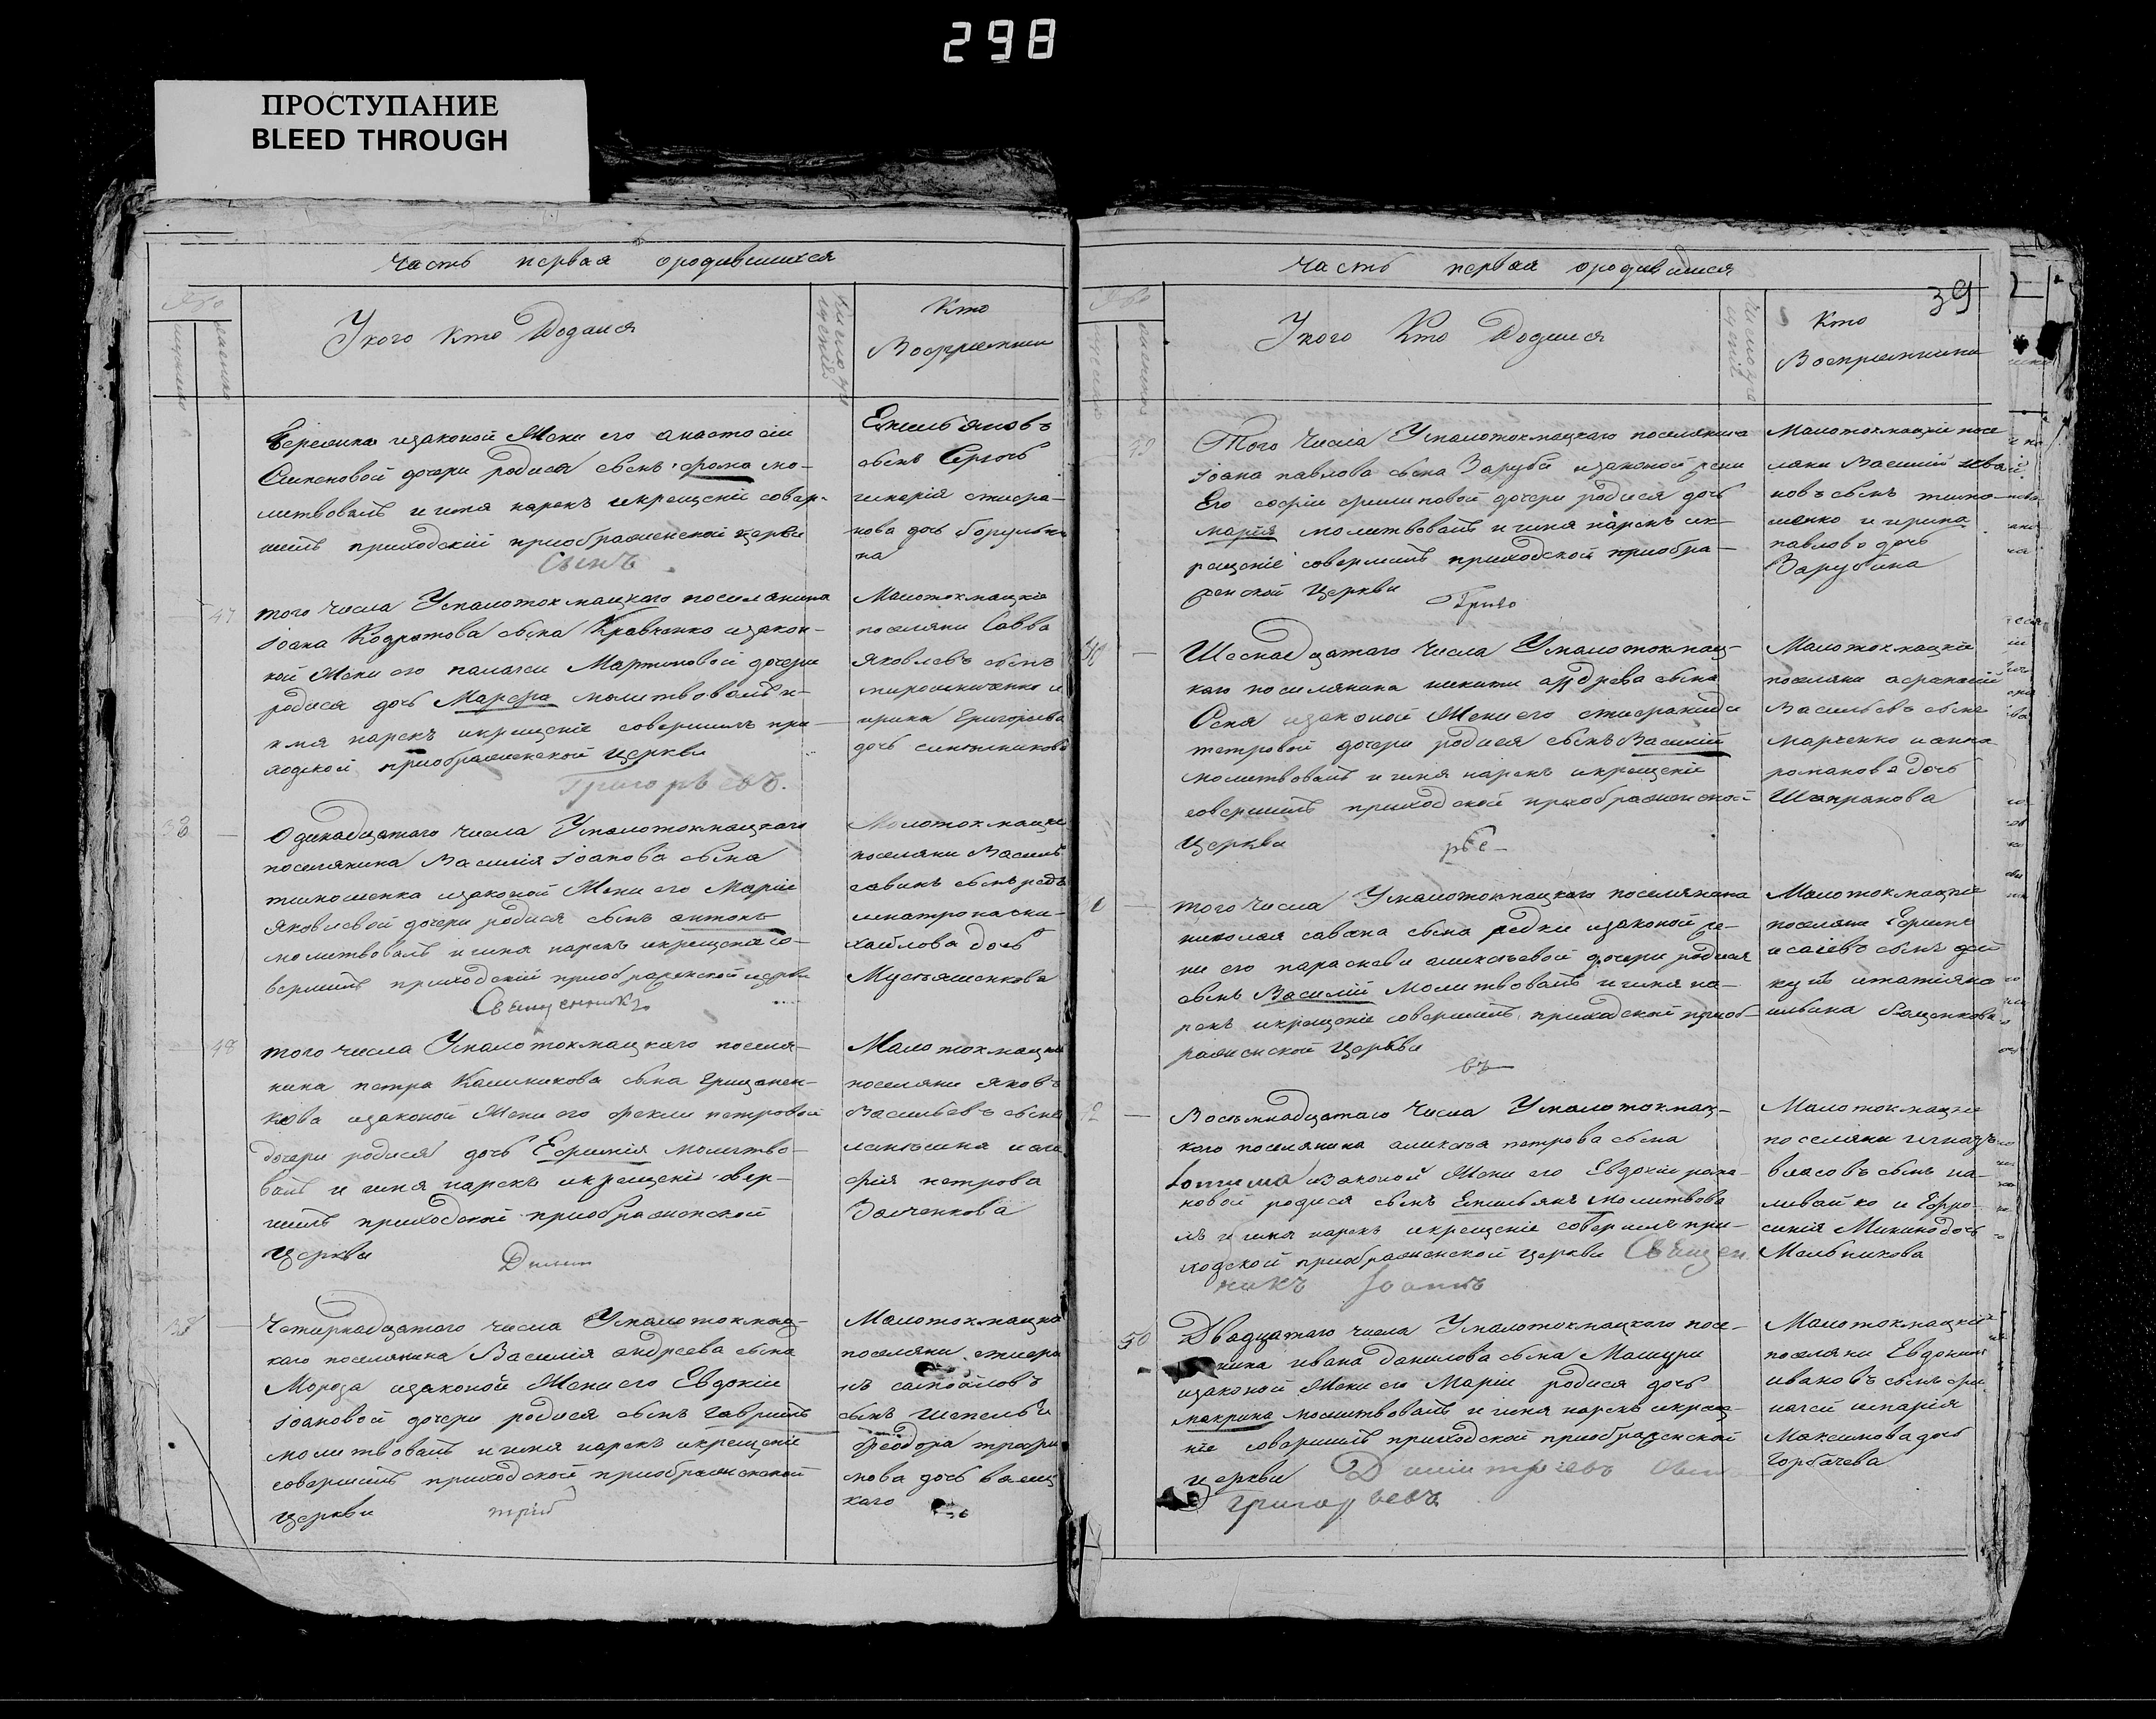 298
ПРОСТУПАНИЕ
BLEED THROUGH
Часть первая ородившихся
У кого кто Родился
Кто
Восприемники
законной жени его анастасіи
Семеновой дочери родился сынъ фома мо-
литвовалъ и имя нарекъ и крещеніе совер-
шилъ приходскій преображенской церкви
сынъ
Емельяновъ
сынъ
гликерія стефа-
нова дочь
на
47
того числа У малотокмацкаго поселянина
Іоана Кодратова сына Кравченко и закон-
ной жени его палагеи Мартиновой дочери
родися дочь Марфа молитвовалъ и-
имя нарекъ и крещеніе совершилъ при-
ходской преображенской церкви
Григорьевъ.
Малотокмацкіе
поселяни Савва
Яковлевъ сынъ
мирошниченко и
ирина Григорьева
дочь
38
Одинадцатаго числа У малотокмацкаго
поселянина Василія Іоанова сына
тимошенка и законой Жени его Маріи
Яковлевой дочери родися сынъ антонъ
молитвовалъ и имя нарекъ и крещеніе со-
вершилъ приходскій преображенской церкви
Священникъ
Малотокмацкіе
поселяни Василь
савинъ сынъ редь
хайлова дочь
48
того числа У малотокмацкаго поселя-
нина петра Калиникова сына Грицанен-
кова и законой Жени его феклы петровой
дочери родися дочь Ефимія молитво-
валъ и имя нарекъ и крещеніе совер-
шилъ приходской преображенской
церкви
Малотокмацкіе
поселяни яковъ
Васильевъ сынъ
фія петрова
Заиченкова
Четирнадцатого числа У малотокмац-
каго поселянина Василія андреева сына
Мороза и законой Жени его Евдокіи
Іоановой дочери родися сынъ гавриилъ
молитвовалъ и имя нарекъ и крещеніе
совершилъ приходской преображенской
церкви
Малотокмацкіе
поселяни стефа
нъ самойловъ
сынъ шепель и
феодора трофи
мова дочь
каго
Часть первая ородившихся
39
У кого Кто Родился
Кто
Восприемники
Того Числа У малотокмацкаго поселянина
Іоана павлова сына Заруби и законой жени
Его софіи филиповой дочери родися дочь
марія молитвовалъ и имя нарекъ и к-
рещеніе совершилъ приходской преобра-
женской церкви
Малотокмацкіе посе
ляни Василій ива
новъ сынъ тимо-
шенко и ирина
павлова дочь
Зарубина
Шеснадцатаго Числа У малотокмац-
каго поселянина никити андреева сына
законой Жени его стефаниди
петровой дочери родися сынъ Василій
молитвовалъ и имя нарекъ и крещеніе
совершилъ приходской преображенской
Церкви
Малотокмацкіе
поселяни афанасій
Васильевъ сынъ
марченко и анна
романова дочь
Шапранова
того числа У малотокмацкаго поселянина
николая савина сына редки и законой же-
ни его параскеви алексеевой дочери родися
сынъ Василій Молитвовалъ и имя на-
рекъ и крещеніе совершилъ приходской преоб-
раженской церкви
въ
Малотокмацкіе
поселяни Ефимъ
исаіевъ сынъ
и татіяна
ильина
Восьмнадцатаго Числа У малотокмац-
каго поселянина алексея петрова сына
и законой Жени его Евдокіи рома-
новой родися сынъ Емельянъ молитвова
лъ и имя нарекъ и крещеніе совершилъ при-
ходской преображенской церкви Священ
никъ Іоаннъ
Малотокмацкіе
поселяни игнатъ
власовъ сынъ на-
ливайко и Ефро-
синія Микина дочь
Мельникова
50
Двадцатаго числа У малотокмацкаго посе-
нина ивана данилова сына Машури
и законой Жени его Маріи родися дочь
макрина молитвовалъ и имя нарекъ и крещ-
ніе совершилъ приходской преображенской
церкви Димитріевъ
Григорьевъ
Малотокмацкіе
поселяни Евдоким
ивановъ сынъ
и марія
Максимова дочь
Горбачева